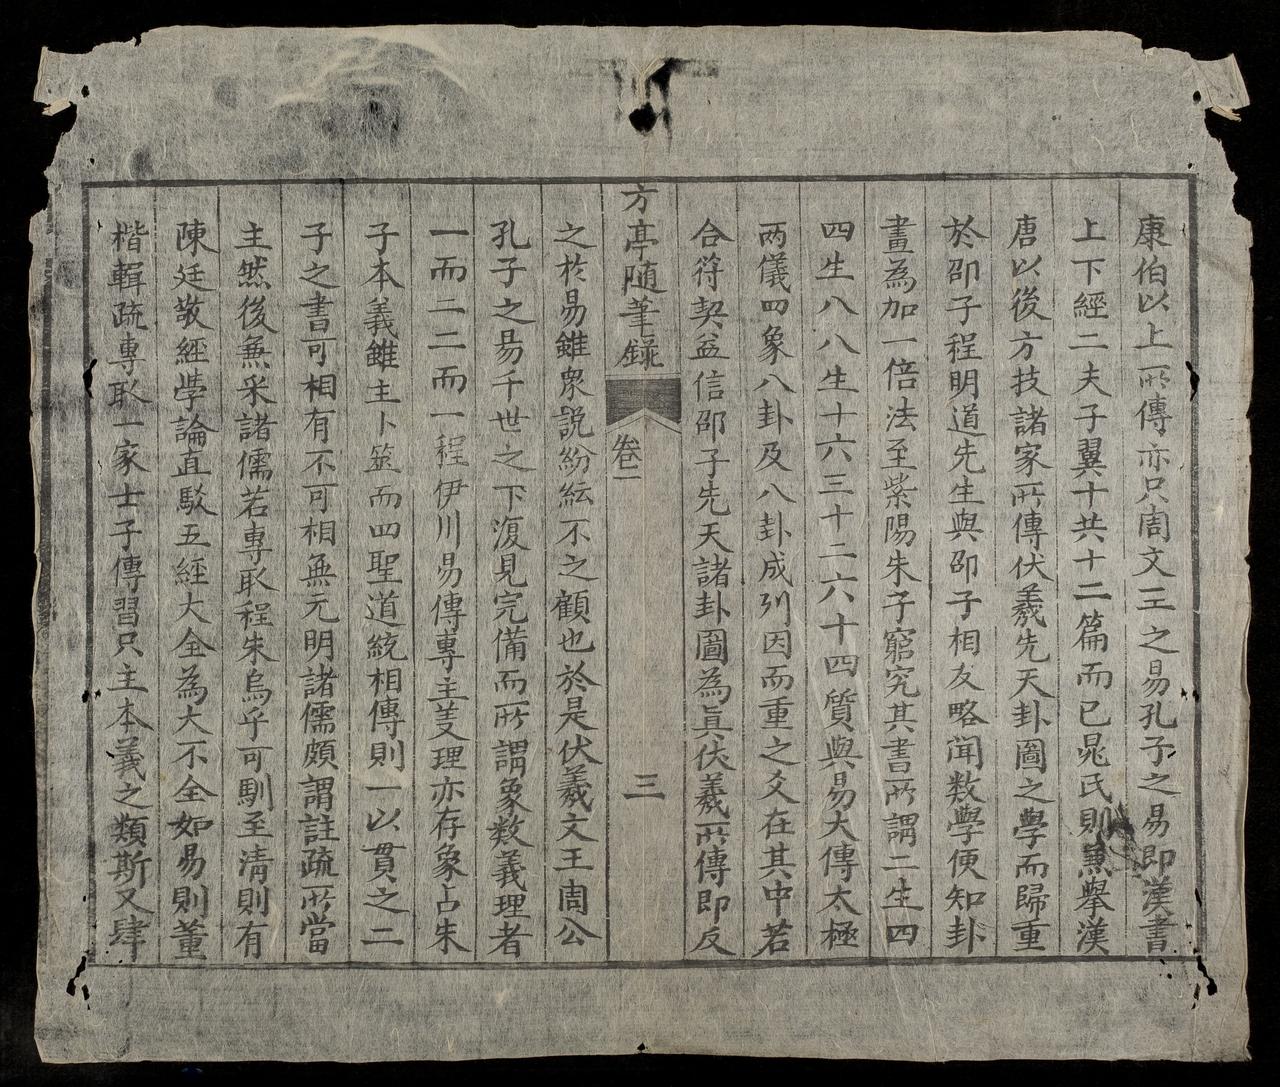 康伯以上所傳亦只周文王之易孔子之易即漢書
上下經二夫子翼十共十二篇而已晁氏則兼舉漢
唐以後方技諸家所傳伏羲先天卦圖之學而歸重
於邵子程明道先生與邵子相友略聞数學便知卦
畫為加一倍法至紫陽朱子窮究其書所謂二生四
四生八八生十六三十二六十四質與易大傳太極
兩儀四象八卦及八卦成列因而重之爻在其中若
合符契益信邵子先天諸卦圖為眞伏羲所傳即反
方亭随筆錄
卷一
三
之於易雖衆說紛紜不之顧也於是伏羲文王周公
孔子之易千世之下復見完備而所謂象数義理者
一而二二而一程伊川易傳專主義理亦存象占朱
子本義雖主卜筮而四聖道統相傳則一以貫之二
子之書可相有不可相無元明諸儒頗謂註疏所當
主然後兼采諸儒若專取程朱烏乎可馴至清則有
陳廷敬經學論直駁五經大全為大不全如易則董
楷輯疏專取一家士子傳習只主本義之類斯又肆